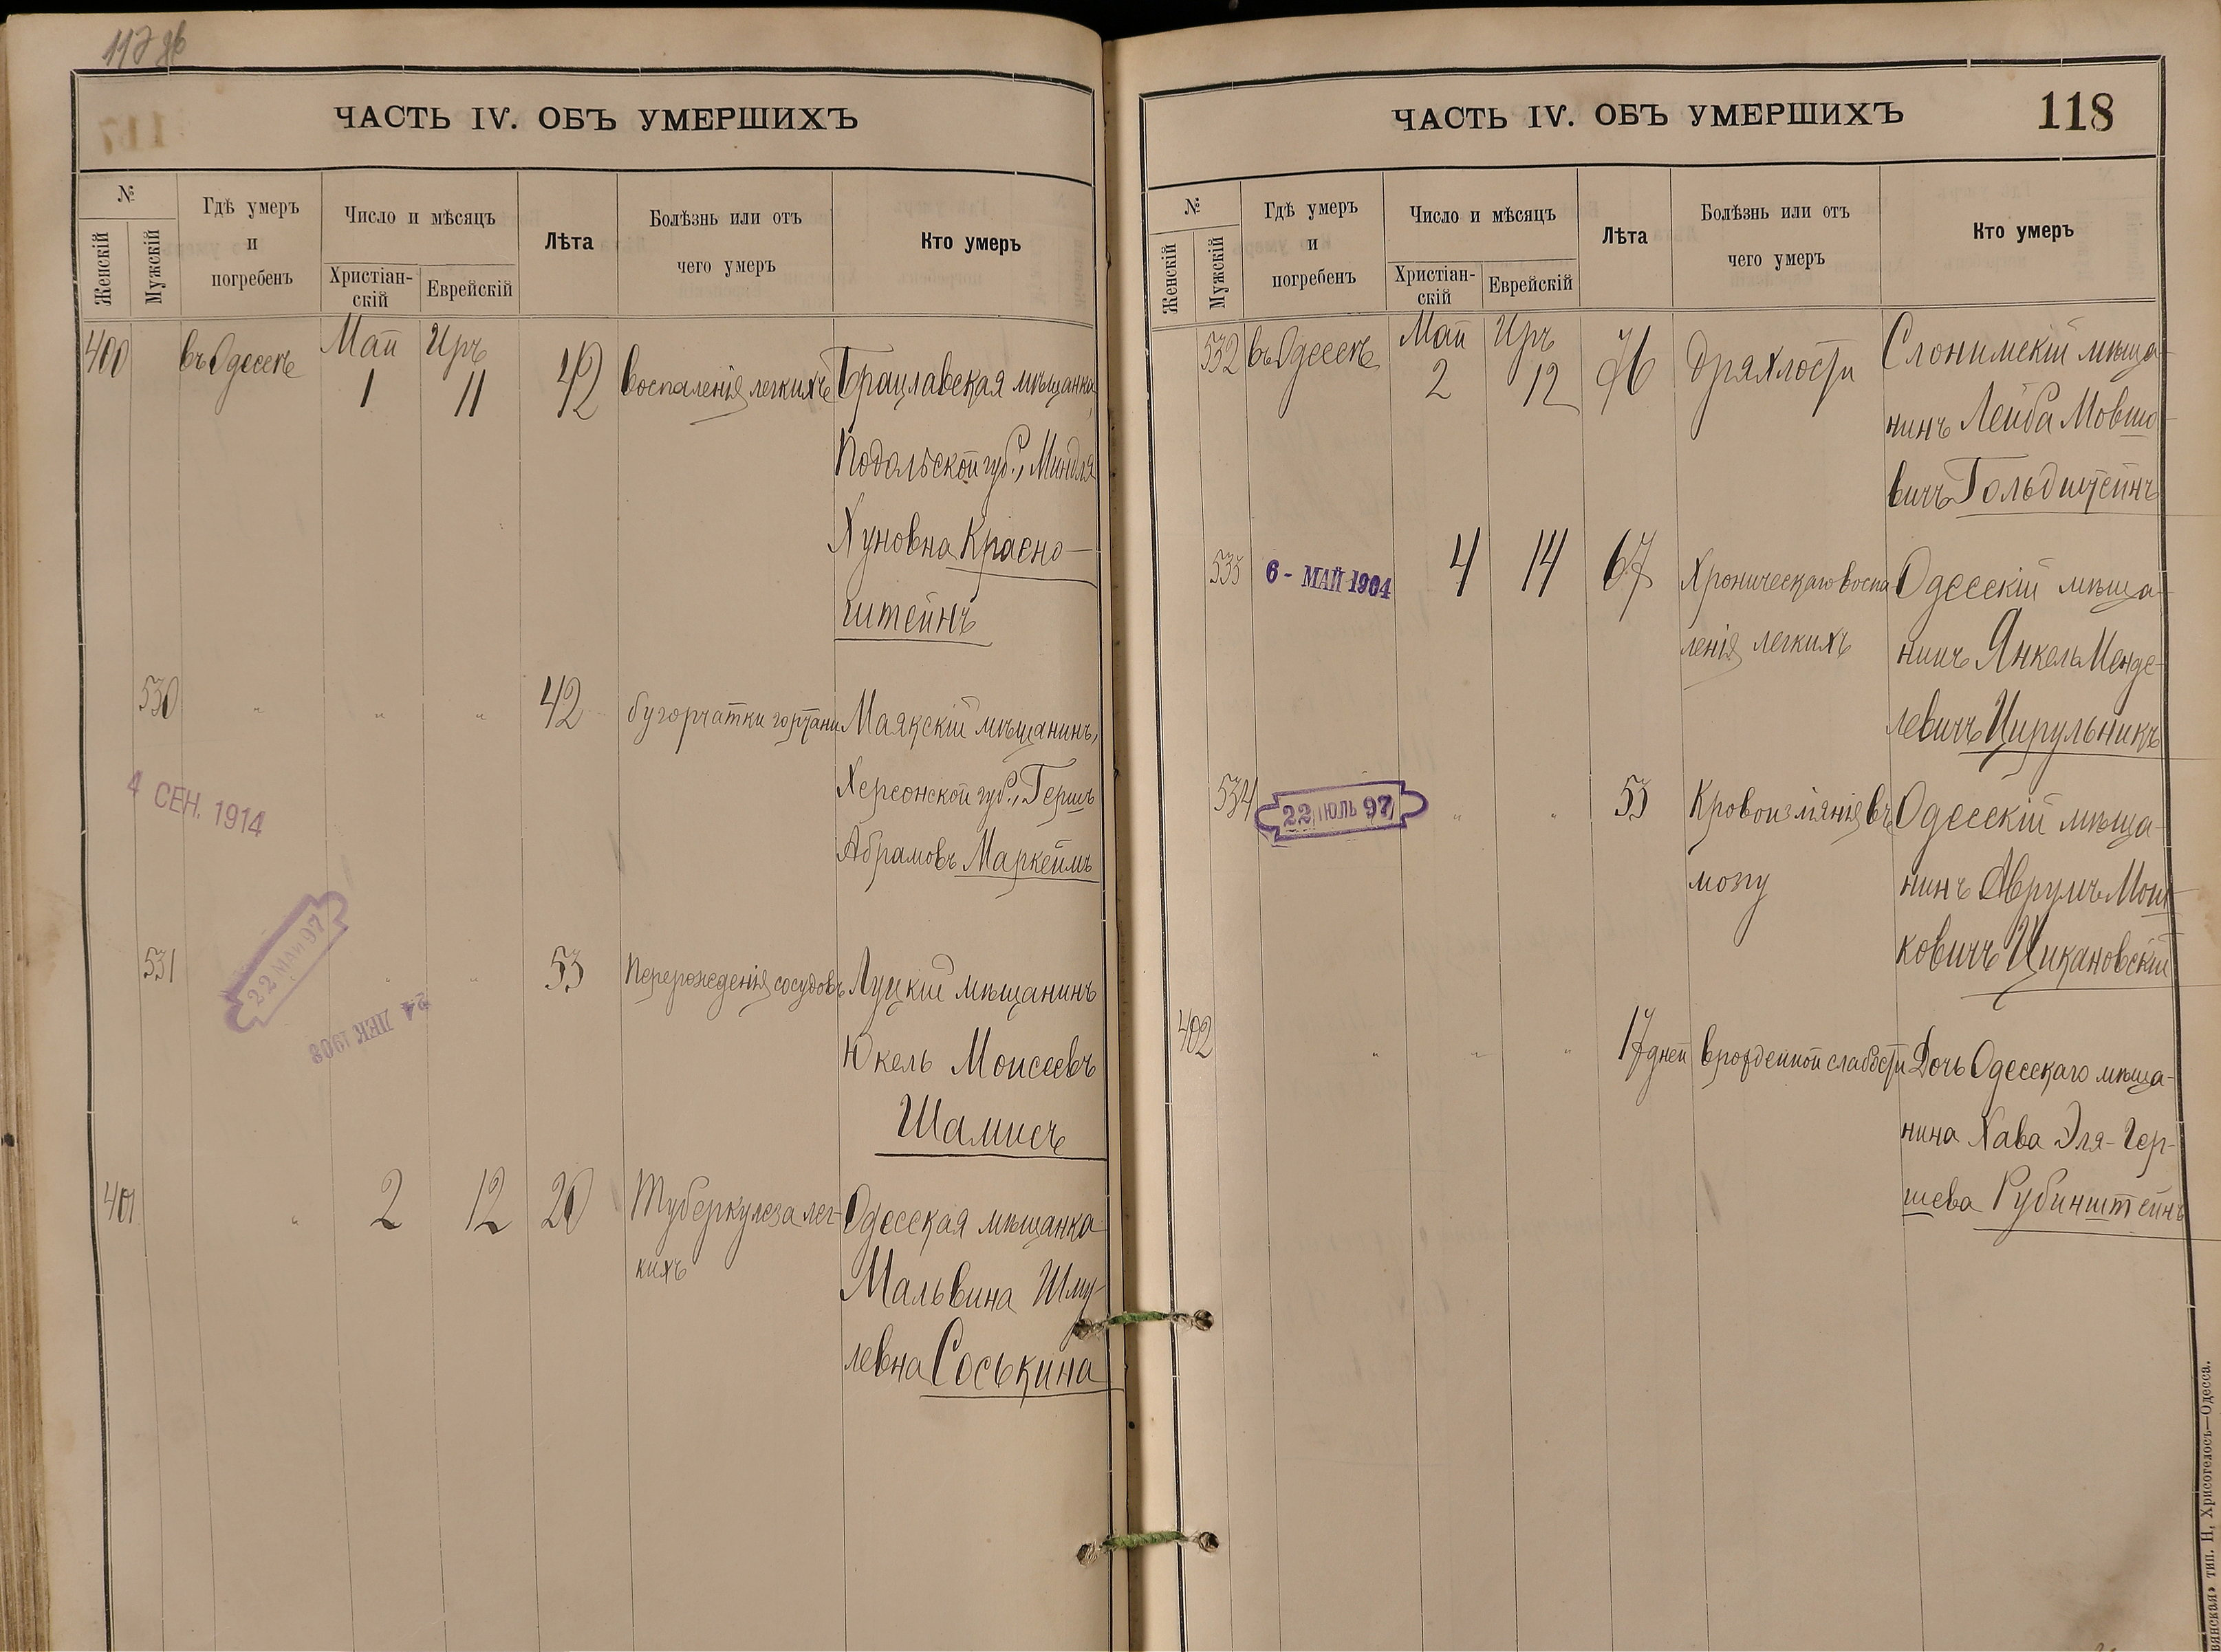 ЧАСТЬ IV. ОБЪ УМЕРШИХЪ
№
Женскій
Мужскій
Гдѣ умеръ
и
погребенъ
Число и мѣсяцъ
Христіан-
скій
Еврейскій
Лѣта
Болѣзнь или отъ
чего умеръ
Кто умеръ
400 въ Одессѣ Май Иръ
1 11 42 Воспаленія легкихъ Брацлавская мѣщанка,
Подольской губ., Миндля
Хуновна Красно-
штейнъ
530 " " " 42 бугорчатки гортани Маякскій мѣщанинъ,
Херсонской губ., Гершъ
Абрамовъ Маркеймъ
4 СЕН. 1914
22 МАЙ 97
531 " " 53 Перерожденія сосудовъ Луцкій мѣщанинъ
Юкель Моисеевъ
Шамисъ
24 ДЕК 1903
401 " 2 12 20 Туберкулеза лег- Одесская мѣщанка
кихъ Мальвина Шму-
левна Соськина
ЧАСТЬ IV. ОБЪ УМЕРШИХЪ 118
№
Женскій
Мужскій
Гдѣ умеръ
и
погребенъ
Число и мѣсяцъ
Христіан-
скій
Еврейскій
Лѣта
Болѣзнь или отъ
чего умеръ
Кто умеръ
532 въ Одессѣ Май Иръ
2 12 76 Дряхлости Слонимскій мѣща-
нинъ Лейба Мовшо-
вичъ Гольдштейнъ
533 6 - МАЙ 1904 4 14 67 Хроническаго воспа Одесскій мѣща-
ленія легкихъ нинъ Янкель Менде-
левичъ Цирульникъ
534 22 ІЮЛЬ 97 " " 53 Кровоизліянія въ Одесскій мѣща-
мозгу нинъ Аврумъ Мош-
ковичъ Цикановскій
402 " " " 17 дней врожденной слабости Дочь Одесскаго мѣща-
нина Хава Эля-Гер-
шева Рубинштейнъ
тип. Н. Хрисогелосъ—Одесса.